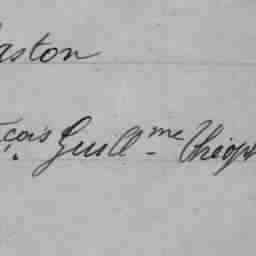 aston
çois Guill^me Théop